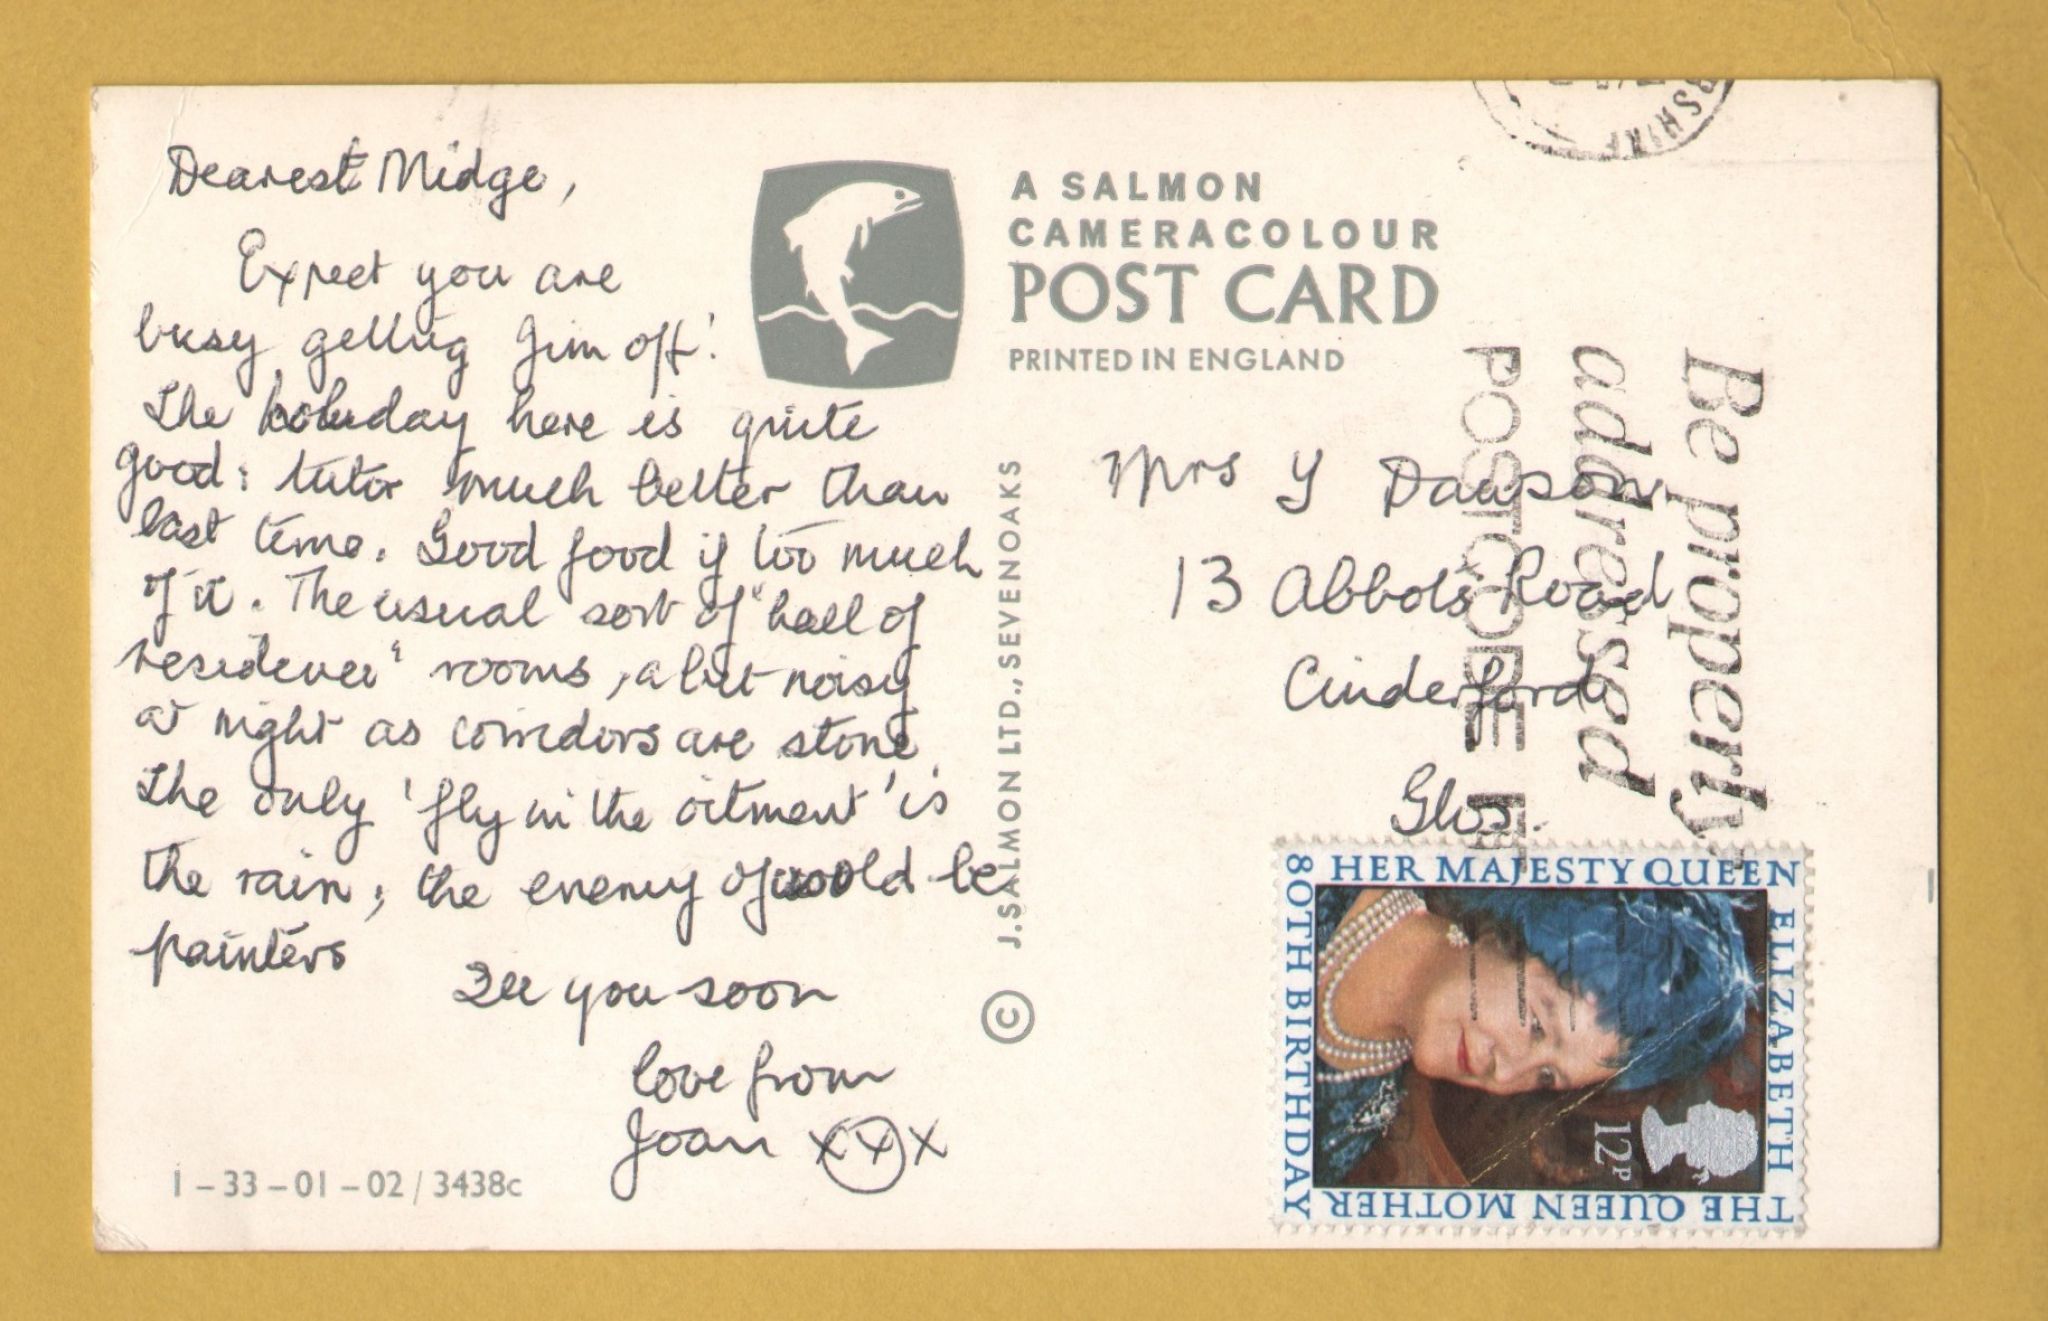 Dearest Midge,
Expect you are
busy getting Jim off!
The holiday here is quite
good: tutor much better than
last time. Good food if too much
of it. The usual sort of "hall of
residence" rooms, a bit noisy
at night as corridors are stone.
The only 'fly in the oitment' is
the rain; the enemy of would be
painters
See you soon
love from
Joan xxx
1-33-01-02/3438c
A SALMON
CAMERACOLOUR
POST CARD
PRINTED IN ENGLAND
© J.SALMON LTD., SEVENOAKS
Mrs Y Dawson
13 Abbots Road
Cinderford
Glos.
Be properly
addressed
POSTCODE IT
HER MAJESTY QUEEN
ELIZABETH THE
QUEEN MOTHER
80TH BIRTHDAY
12P